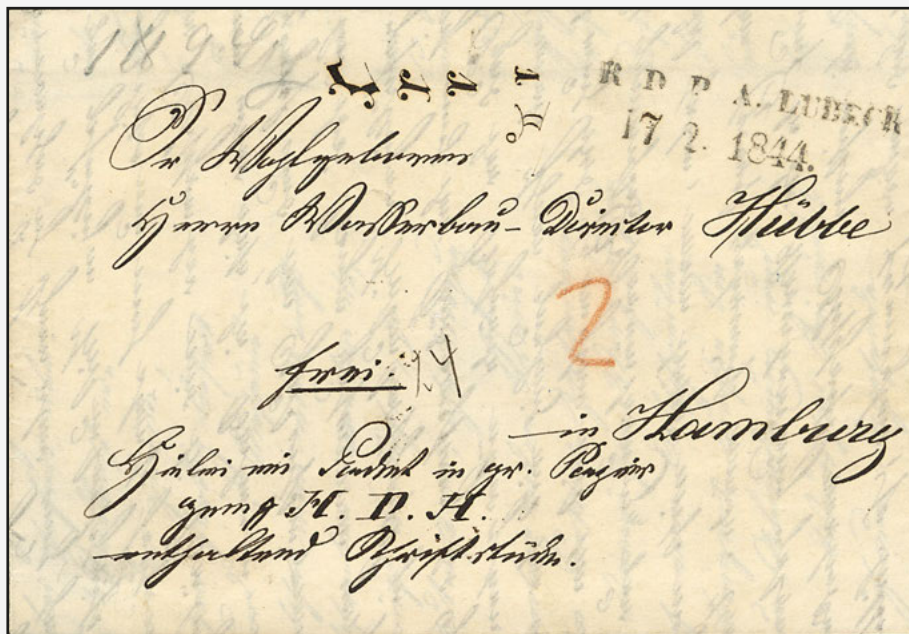 K D P A. LUBECK
17 2. 1844.
Sr Wohlgeboren
Herrn Wasserbau-Director Hübbe
2
frei.
in Hamburg
Hiebei ein Packet in gr. Papier
H. D. H.
enthaltend Schriftstücke.